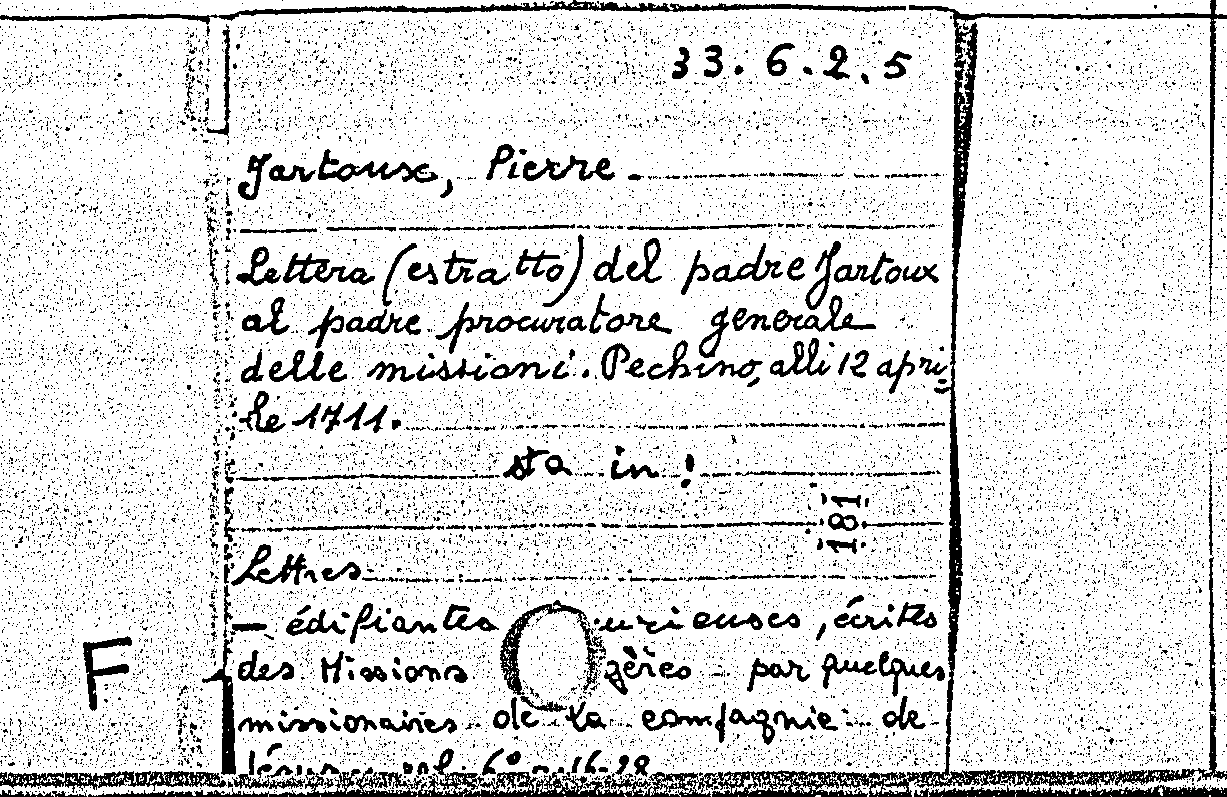 33.6.2.5
Jartoux, Pierre.
Lettera (estratto) del padre Jartoux
al padre procuratore generale
delle missioni. Pechino, alli 12 apri=
le 1711.
sta in:
181
Lettres
— édifiantes urieuses, écrites
des Missions gères par quelques
F
missionaires de la compagnie de
Jésus vol. 6° p. 16-28